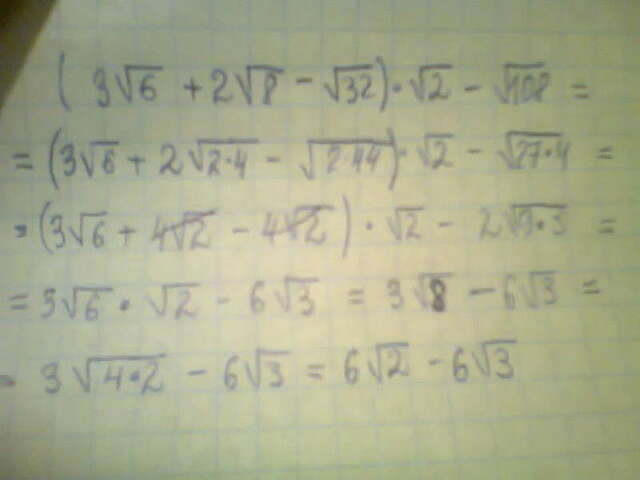 ( 3√6 + 2√8 − √32) · √2 − √108 =
= (3√6 + 2√2·4 − √2·44) · √2 − √27·4 =
= (3√6 + 4√2 − 4√2 ) · √2 − 2√9·3 =
= 3√6 · √2 − 6√3 = 3√8 − 6√3 =
= 3√4·2 − 6√3 = 6√2 − 6√3